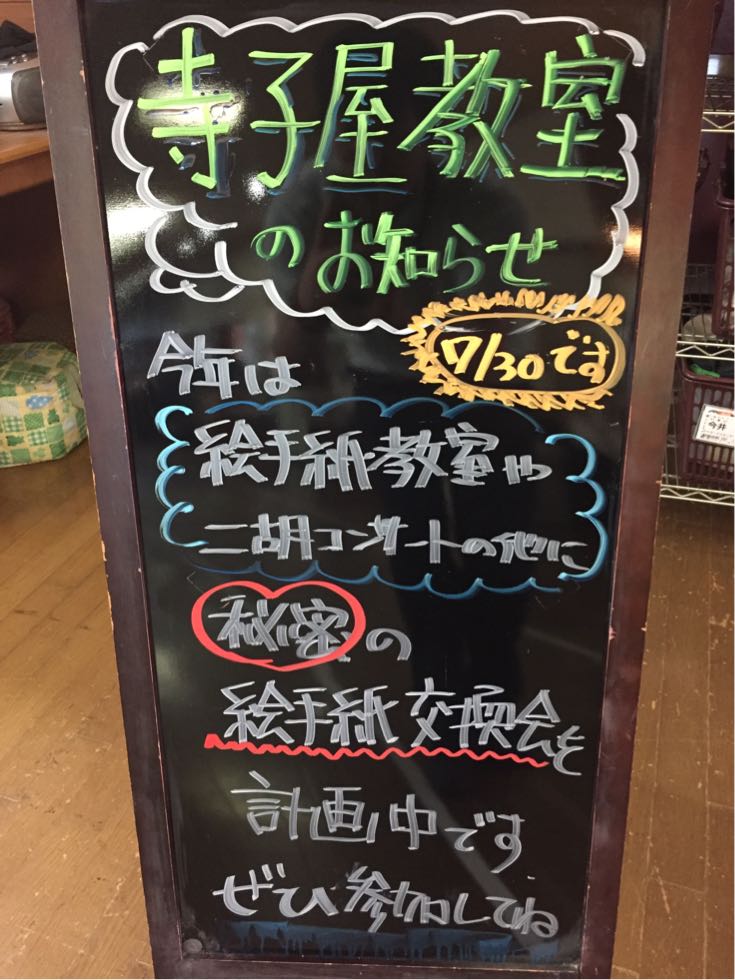 寺子屋教室
のお知らせ
7/30です
今年は
絵手紙教室や
二胡コンサートの他に
秘密の
絵手紙交換会を
計画中です
ぜひ参加してね
今井